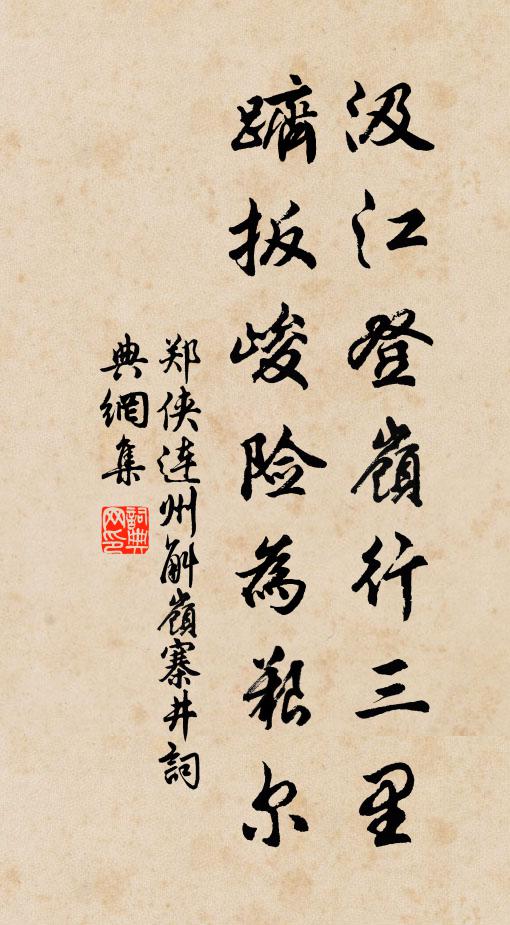 汲江登嶺行三里
躋扳峻险為艱尔
郑侠连州斛嶺寨井詞
典網集
詞典
网印